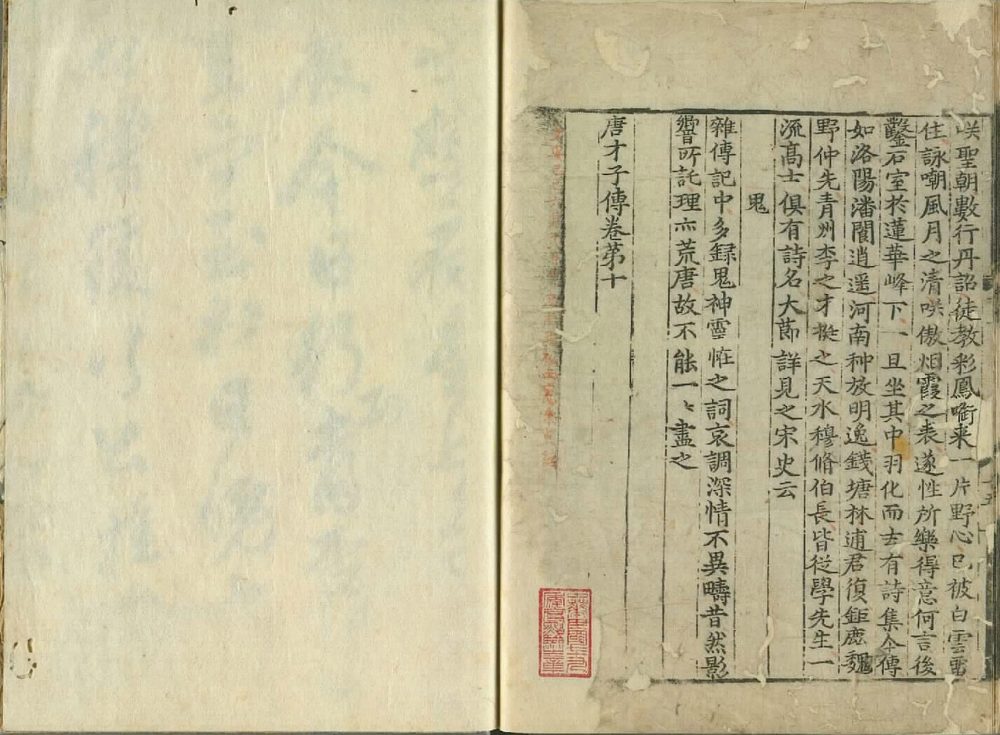 咲聖朝數行丹詔徒教彩鳳啣来一片野心已被白雲畱
住詠嘲風月之清咲傲烟霞之表遂性所樂得意何言後
鑿石室於蓮華峰下一旦坐其中羽化而去有詩集今傳
如洛陽潘閬逍遥河南种放明逸錢塘林逋君復鉅鹿魏
野仲先青州李之才挺之天水穆脩伯長皆從學先生一
流髙士俱有詩名大莭詳見之宋史云
鬼
雜傳記中多録鬼神靈恠之詞哀調深情不異疇昔然影
響所託理亦荒唐故不能一〻盡之
唐才子傳卷第十